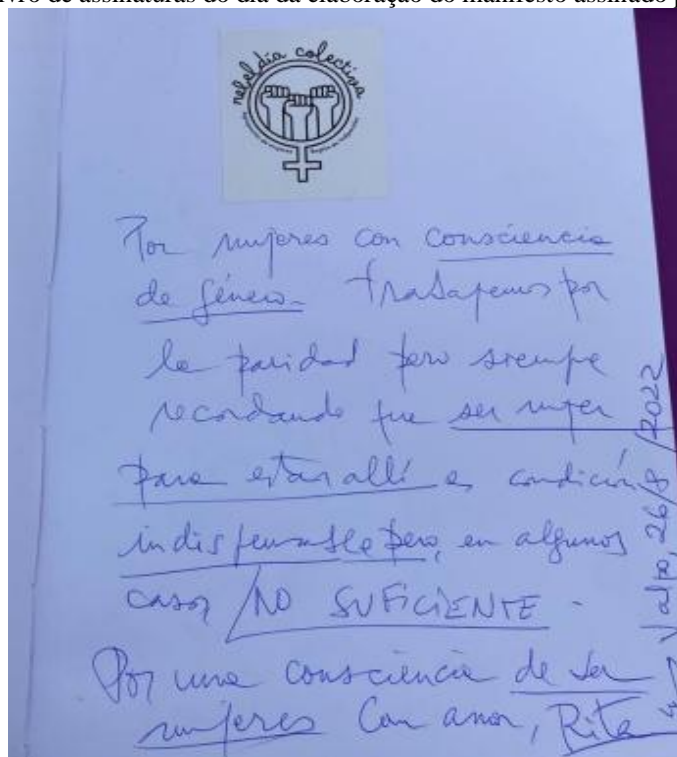 livro de assinaturas do dia da elaboração do manifesto assinado
rebeldía colectiva
Por mujeres con consciencia
de género. Trabajemos por
la paridad pero siempre
recordando que ser mujer
para estar allí es condición
indispensable pero, en algunos
casos NO SUFICIENTE -
Por una consciencia de ser
mujeres Con amor, Rita
Valpo, 26/8/2022